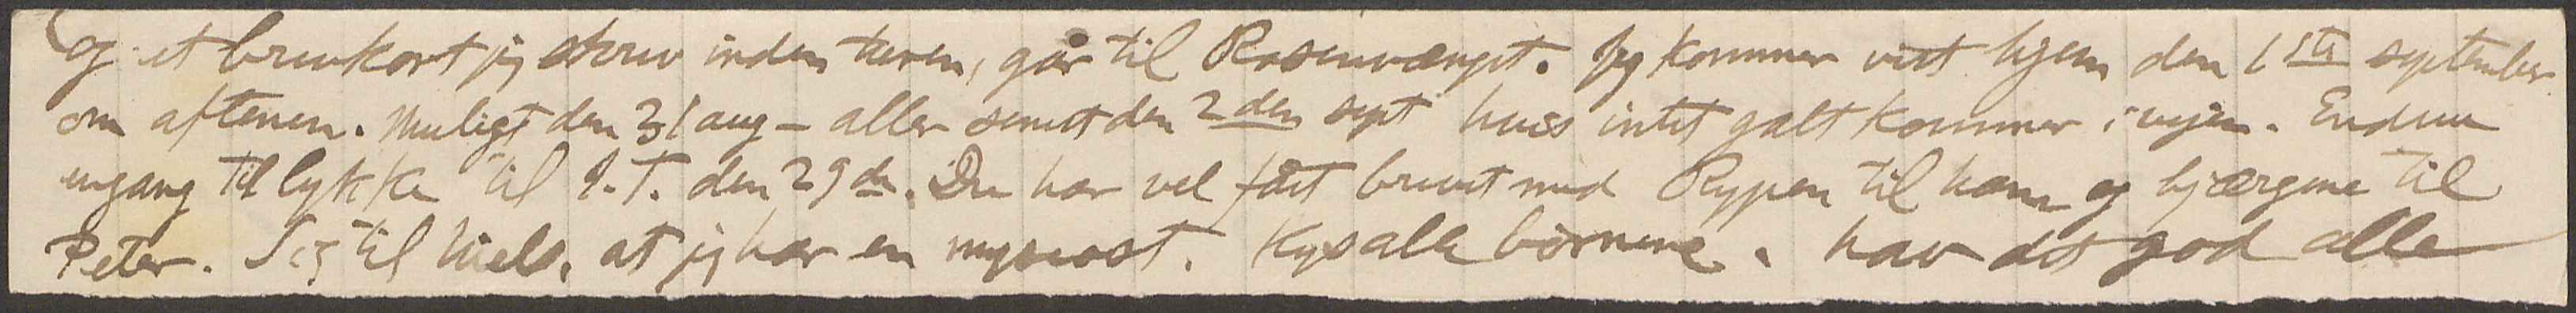 og et brevkort jeg skrev inden turen, går til Rosenvænget. Jeg kommer vist hjem den 1ste september
om aftenen. Muligt den 31 aug - aller senest den 2den sept hvis intet galt kommer ivejen. Endnu
engang til lykke til I.T. den 29de. Du har vel fået brevet med Rypen til ham og bjærgene til
Peter. Sig til Niels, at jeg har en myseost. Kys alle börnene. hav det god alle